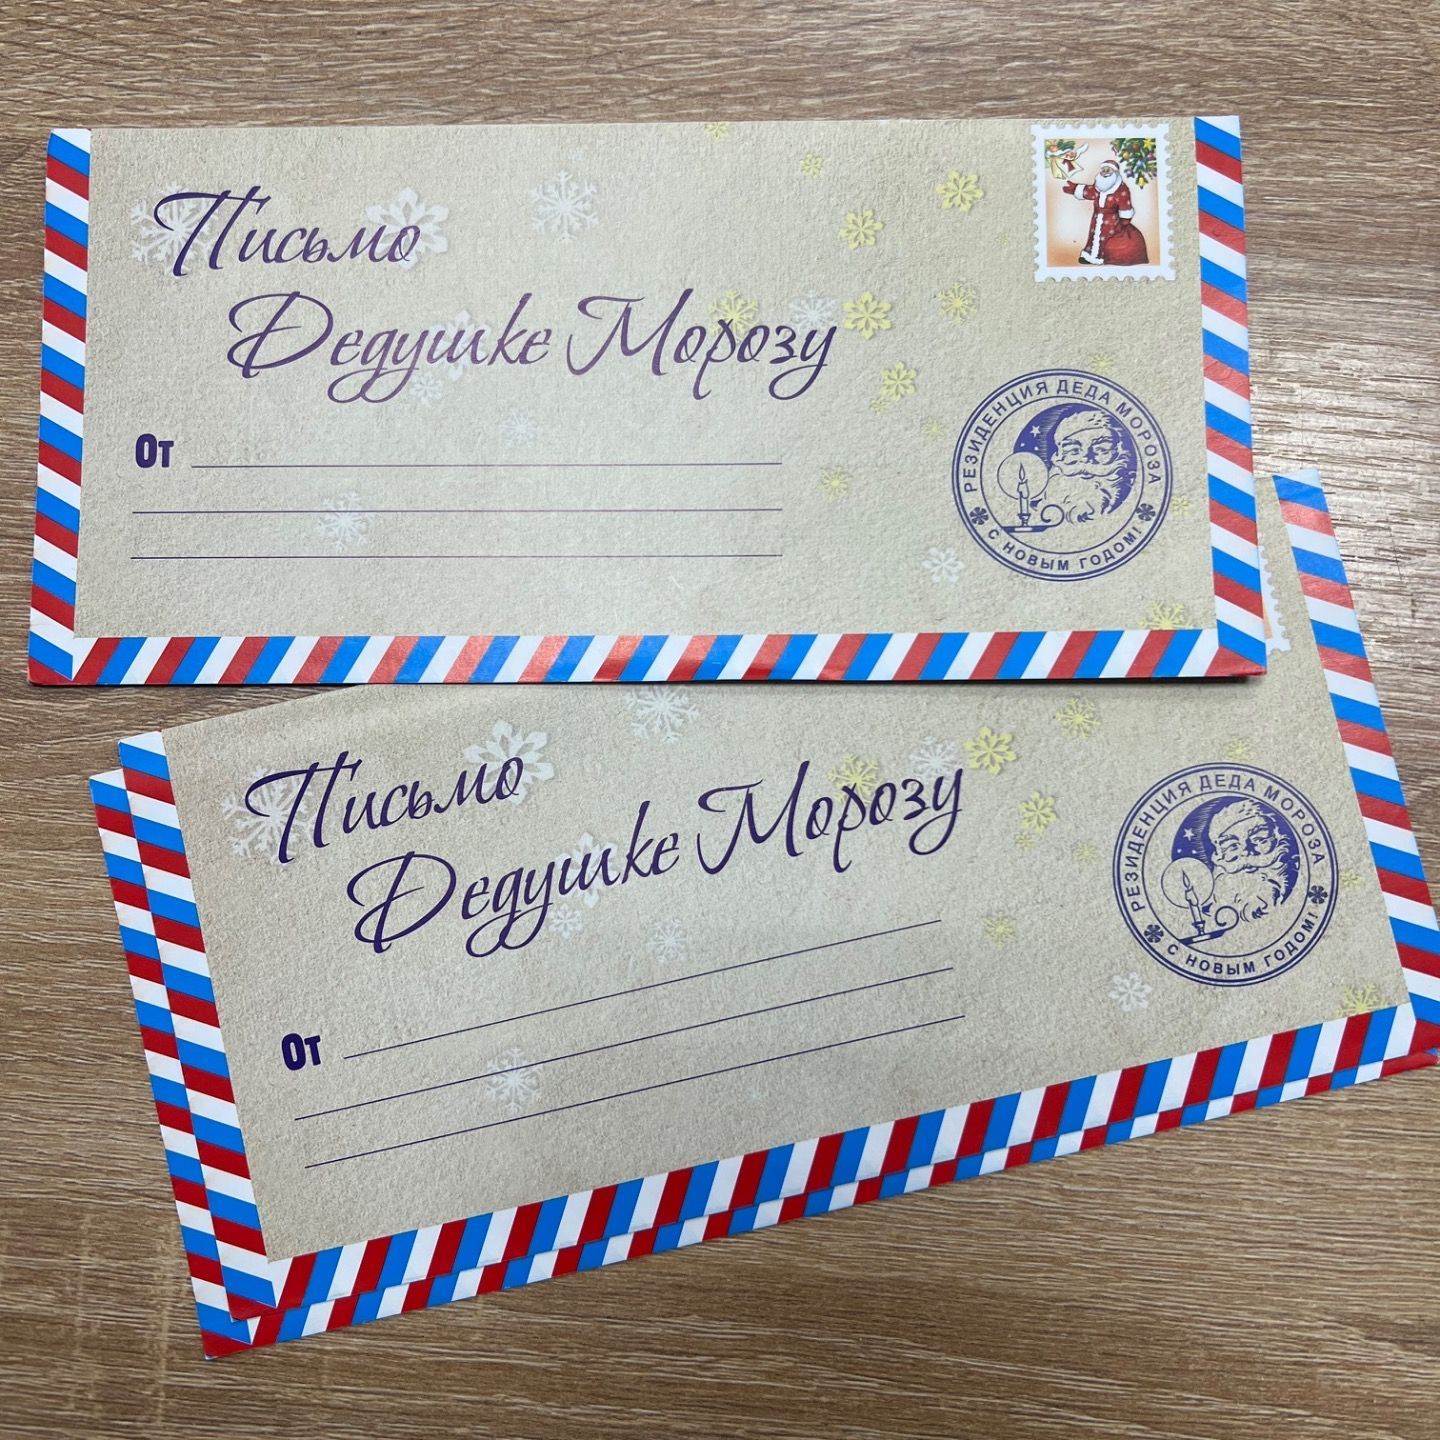 Письмо
Дедушке Морозу
От
РЕЗИДЕНЦИЯ ДЕДА МОРОЗА
С НОВЫМ ГОДОМ!
Письмо
Дедушке Морозу
От
РЕЗИДЕНЦИЯ ДЕДА МОРОЗА
С НОВЫМ ГОДОМ!